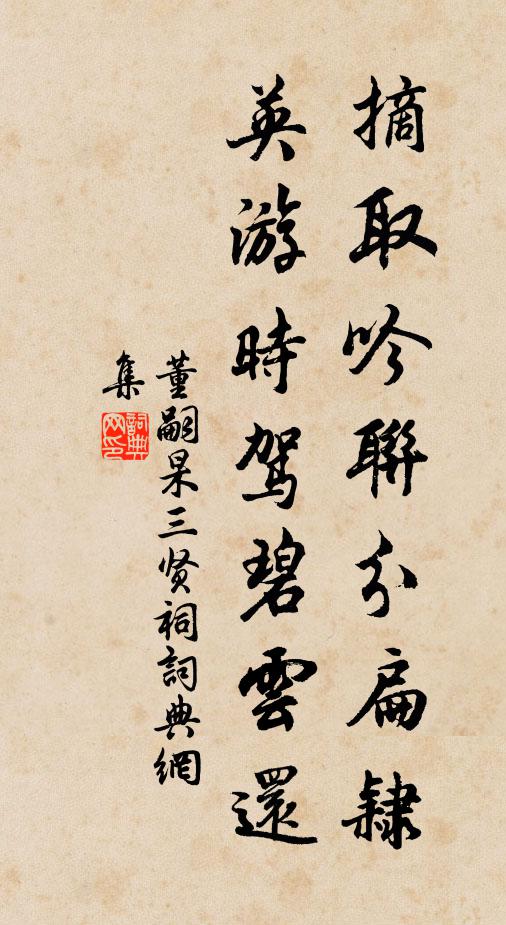 摘取吟聯分扁隸
英游時駕碧雲還
董嗣杲三贤祠詞典網
集
詞典網印